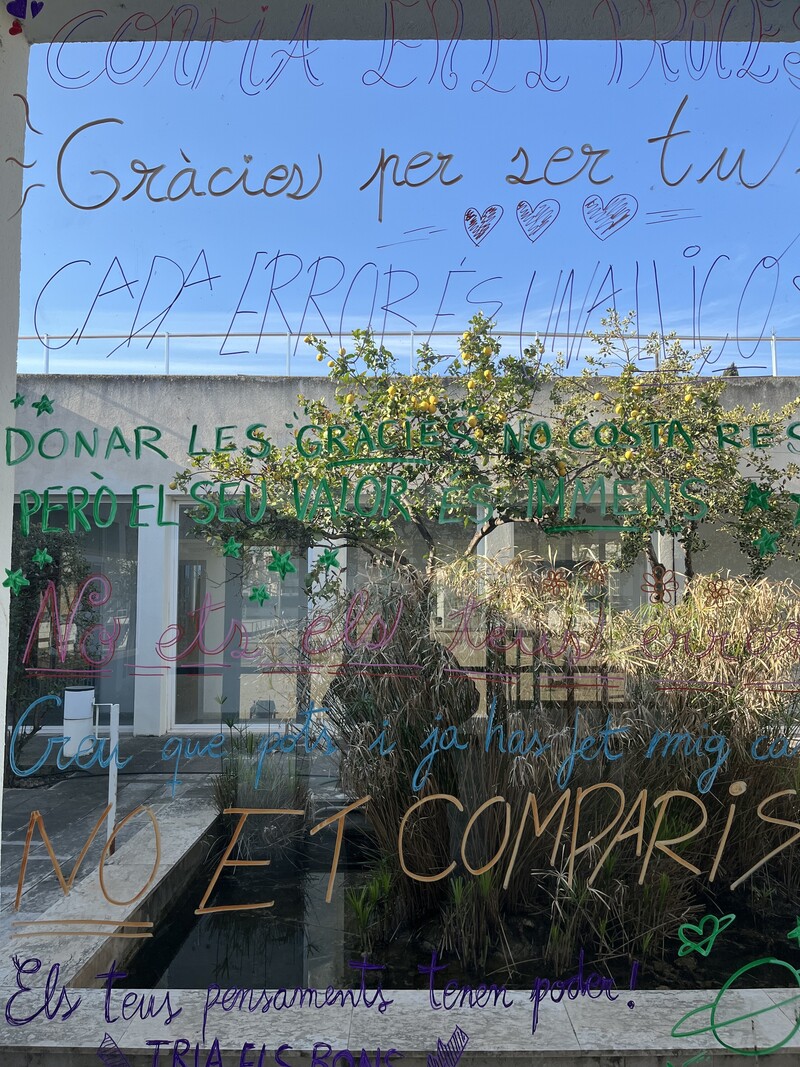 CONFIA EN EL PROCÉS
Gràcies per ser tu
CADA ERROR ÉS UNA LLIÇÓ
DONAR LES "GRÀCIES" NO COSTA RES
PERÒ EL SEU VALOR ÉS IMMENS
No ets els teus error
Creu que pots i ja has fet mig ca
NO ET COMPARIS
Els teus pensaments tenen poder!
TRIA ELS BONS